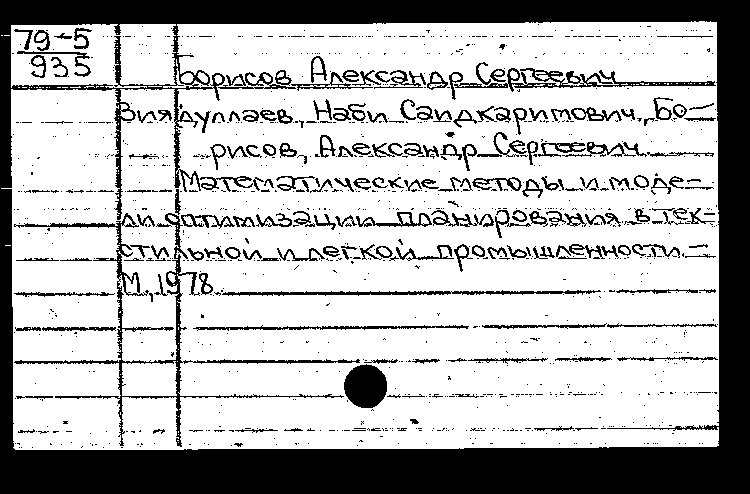 79-5
935
Борисов, Александр Сергеевич
Зиядуллаев, Наби Саидкаримович, Бо-
рисов, Александр Сергеевич
Математические методы и моде-
ли оптимизации планирования в тек-
стильной и легкой промышленности. -
М., 1978